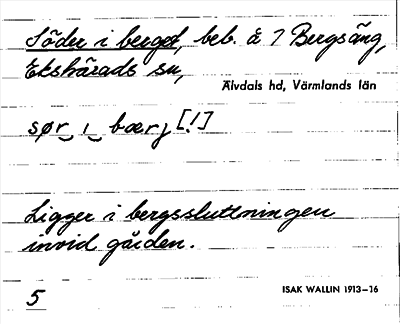 Söder i berget, beb. å 7 Bergsäng,
Ekshärads sn,
Älvdals hd, Värmlands län
sør‿ı‿bærj [!]
Ligger i bergssluttningen
invid gården.
5
ISAK WALLIN 1913–16